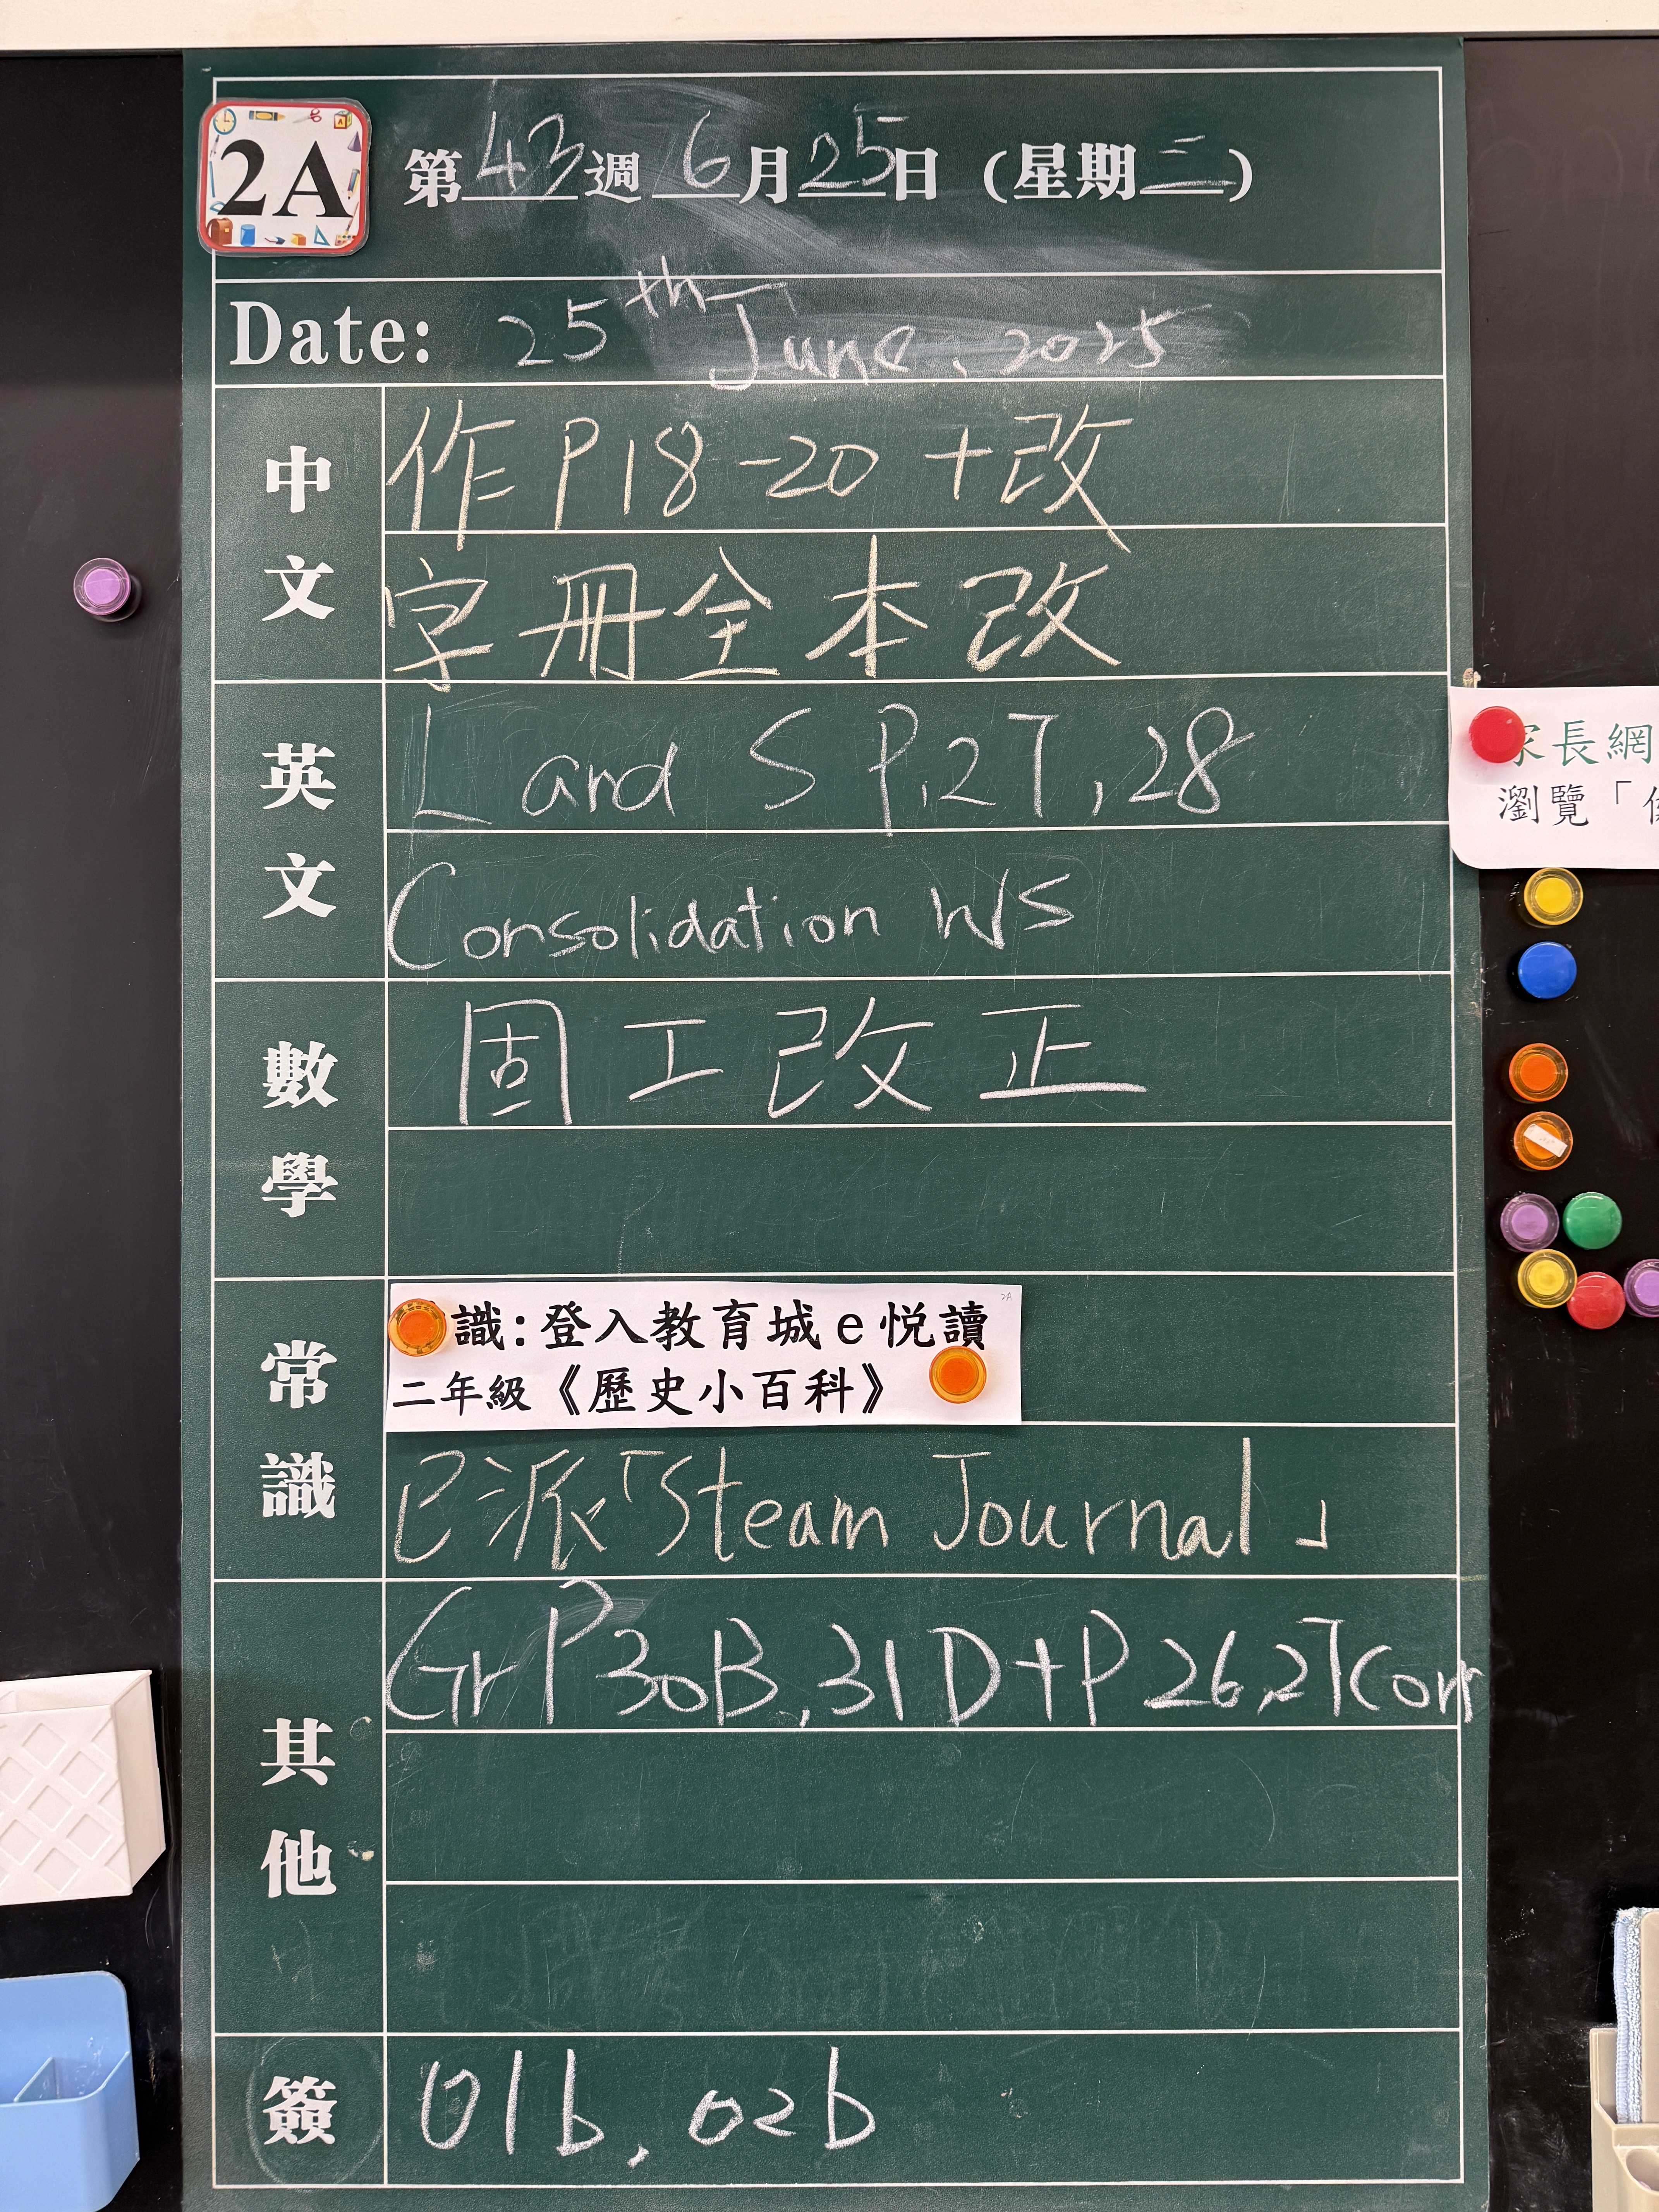 2A
第43週 6月25日（星期三）
Date: 25th June, 2025
中文
作 P18-20 +改
字冊全本改
英文
L and S P.27, 28
Consolidation WS
數學
固工改正
常識
識:登入教育城e悅讀
二年級《歷史小百科》
2A
已派「Steam Journal」
其他
Gr P30B, 31D+P26,27Corr
簽
01b, 02b
家長網
瀏覽「